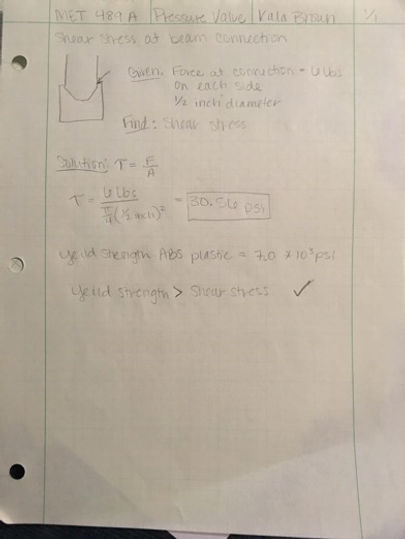 MET 489A Pressure Valve Kala Brown 1/1
Shear stress at beam connection
Given: Force at connection = 6 lbs
on each side
1/2 inch diameter
Find: Shear stress
Solution: τ = F/A
τ = 6 lbs / π/4 (1/2 inch)² = 30.56 psi
Yeild strength ABS plastic = 7.0 × 10³ psi
Yeild strength > Shear stress ✓